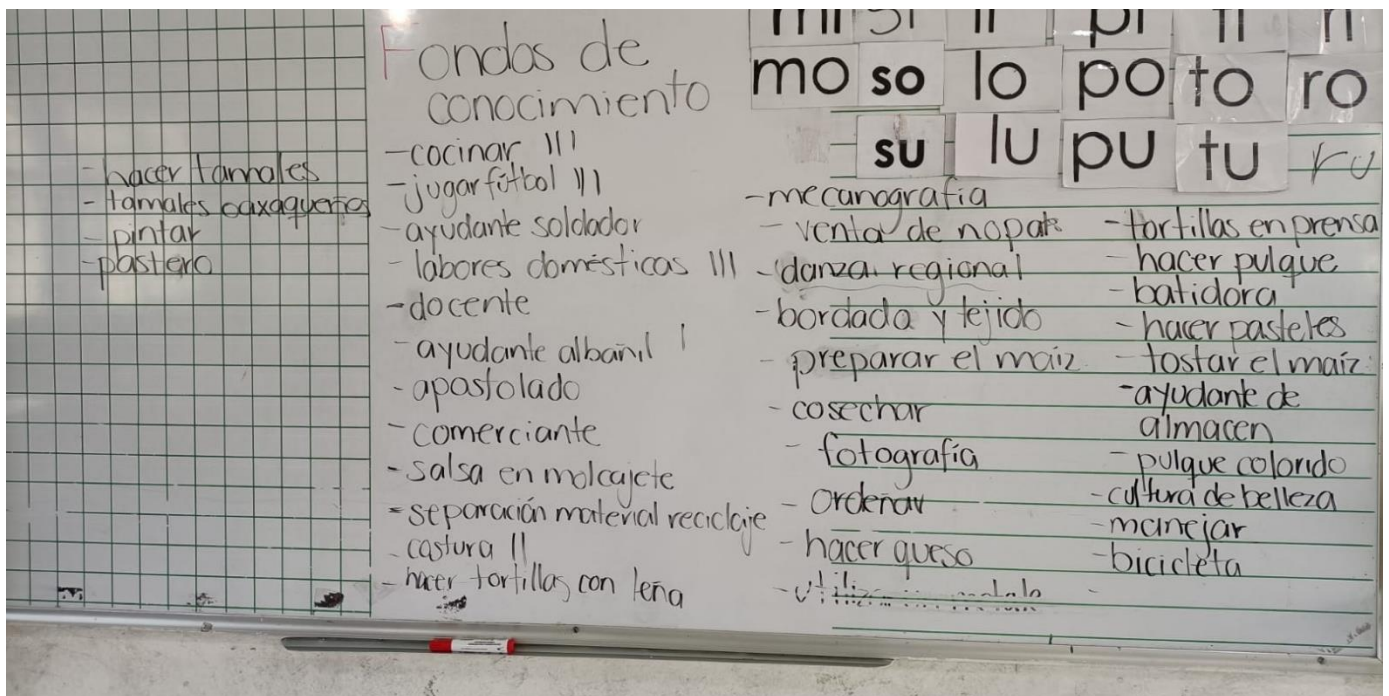 Fondos de
conocimiento
- cocinar III
- jugar fútbol III
- ayudante soldador
- labores domésticas III
- docente
- ayudante albañil I
- apostolado
- comerciante
- salsa en molcajete
- separación material reciclaje
- costura II
- hacer tortillas con leña
- hacer tamales
- tamales oaxaqueños
- pintar
- pastero
mi si li pi ti ri
mo so lo po to ro
su lu pu tu ru
- mecanografía
- venta de nopal
- danza regional
- bordada y tejido
- preparar el maíz
- cosechar
- fotografía
- ordeñar
- hacer queso
- tortillas en prensa
- hacer pulque
- batidora
- hacer pasteles
- tostar el maíz
- ayudante de
almacen
- pulque colorido
- cultura de belleza
- manejar
- bicicleta